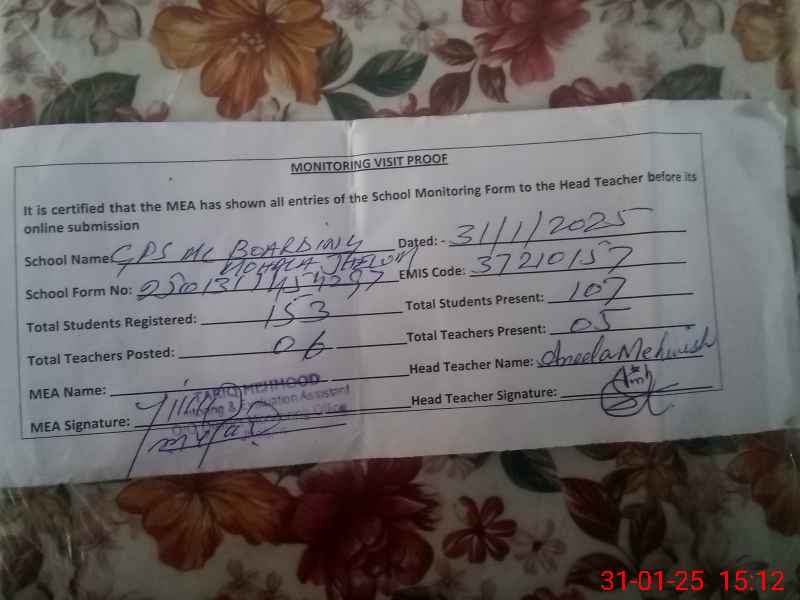 MONITORING VISIT PROOF
It is certified that the MEA has shown all entries of the School Monitoring Form to the Head Teacher before its
online submission
School Name: GPS MC BOARDING Dated: - 31/1/2025
MOHALA JHELUM
School Form No: EMIS Code: 37210157
Total Students Registered: 153 Total Students Present: 107
Total Teachers Posted: 06 Total Teachers Present: 05
MEA Name: Head Teacher Name: Aneela Mehwish
TARIQ MEHMOOD
MEA Signature: Head Teacher Signature:
31-01-25 15:12